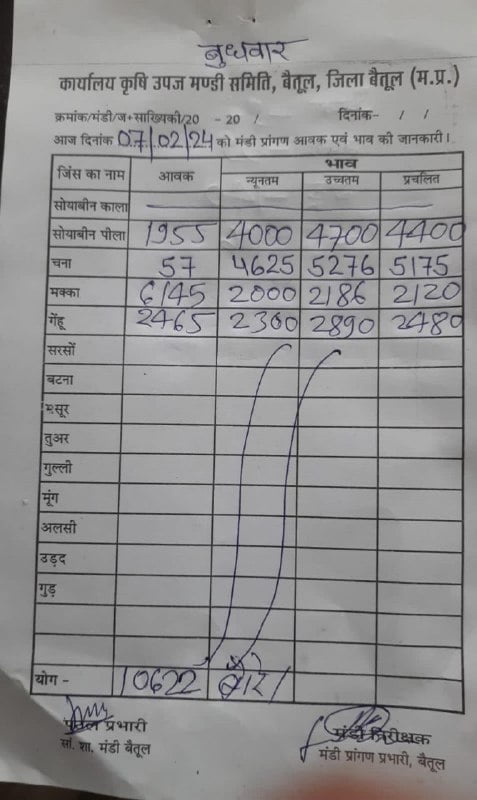 बुधवार
कार्यालय कृषि उपज मण्डी समिति, बैतूल, जिला बैतूल (म.प्र.)
क्रमांक/मंडी/ज+साख्यिकी/20 - 20 / दिनांक- / /
आज दिनांक 07/02/24 को मंडी प्रांगण आवक एवं भाव की जानकारी।
जिंस का नाम आवक भाव
न्यूनतम उच्चतम प्रचलित
सोयाबीन काला
सोयाबीन पीला 1955 4000 4700 4400
चना 57 4625 5276 5175
मक्का 6145 2000 2186 2120
गेंहू 2465 2300 2890 2480
सरसों
बटना
मसूर
तुअर
गुल्ली
मूंग
अलसी
उड़द
गुड़
योग - 10622 बोरे
प्रभारी
सां. शा. मंडी बैतूल
मंडी निरीक्षक
मंडी प्रांगण प्रभारी, बैतूल